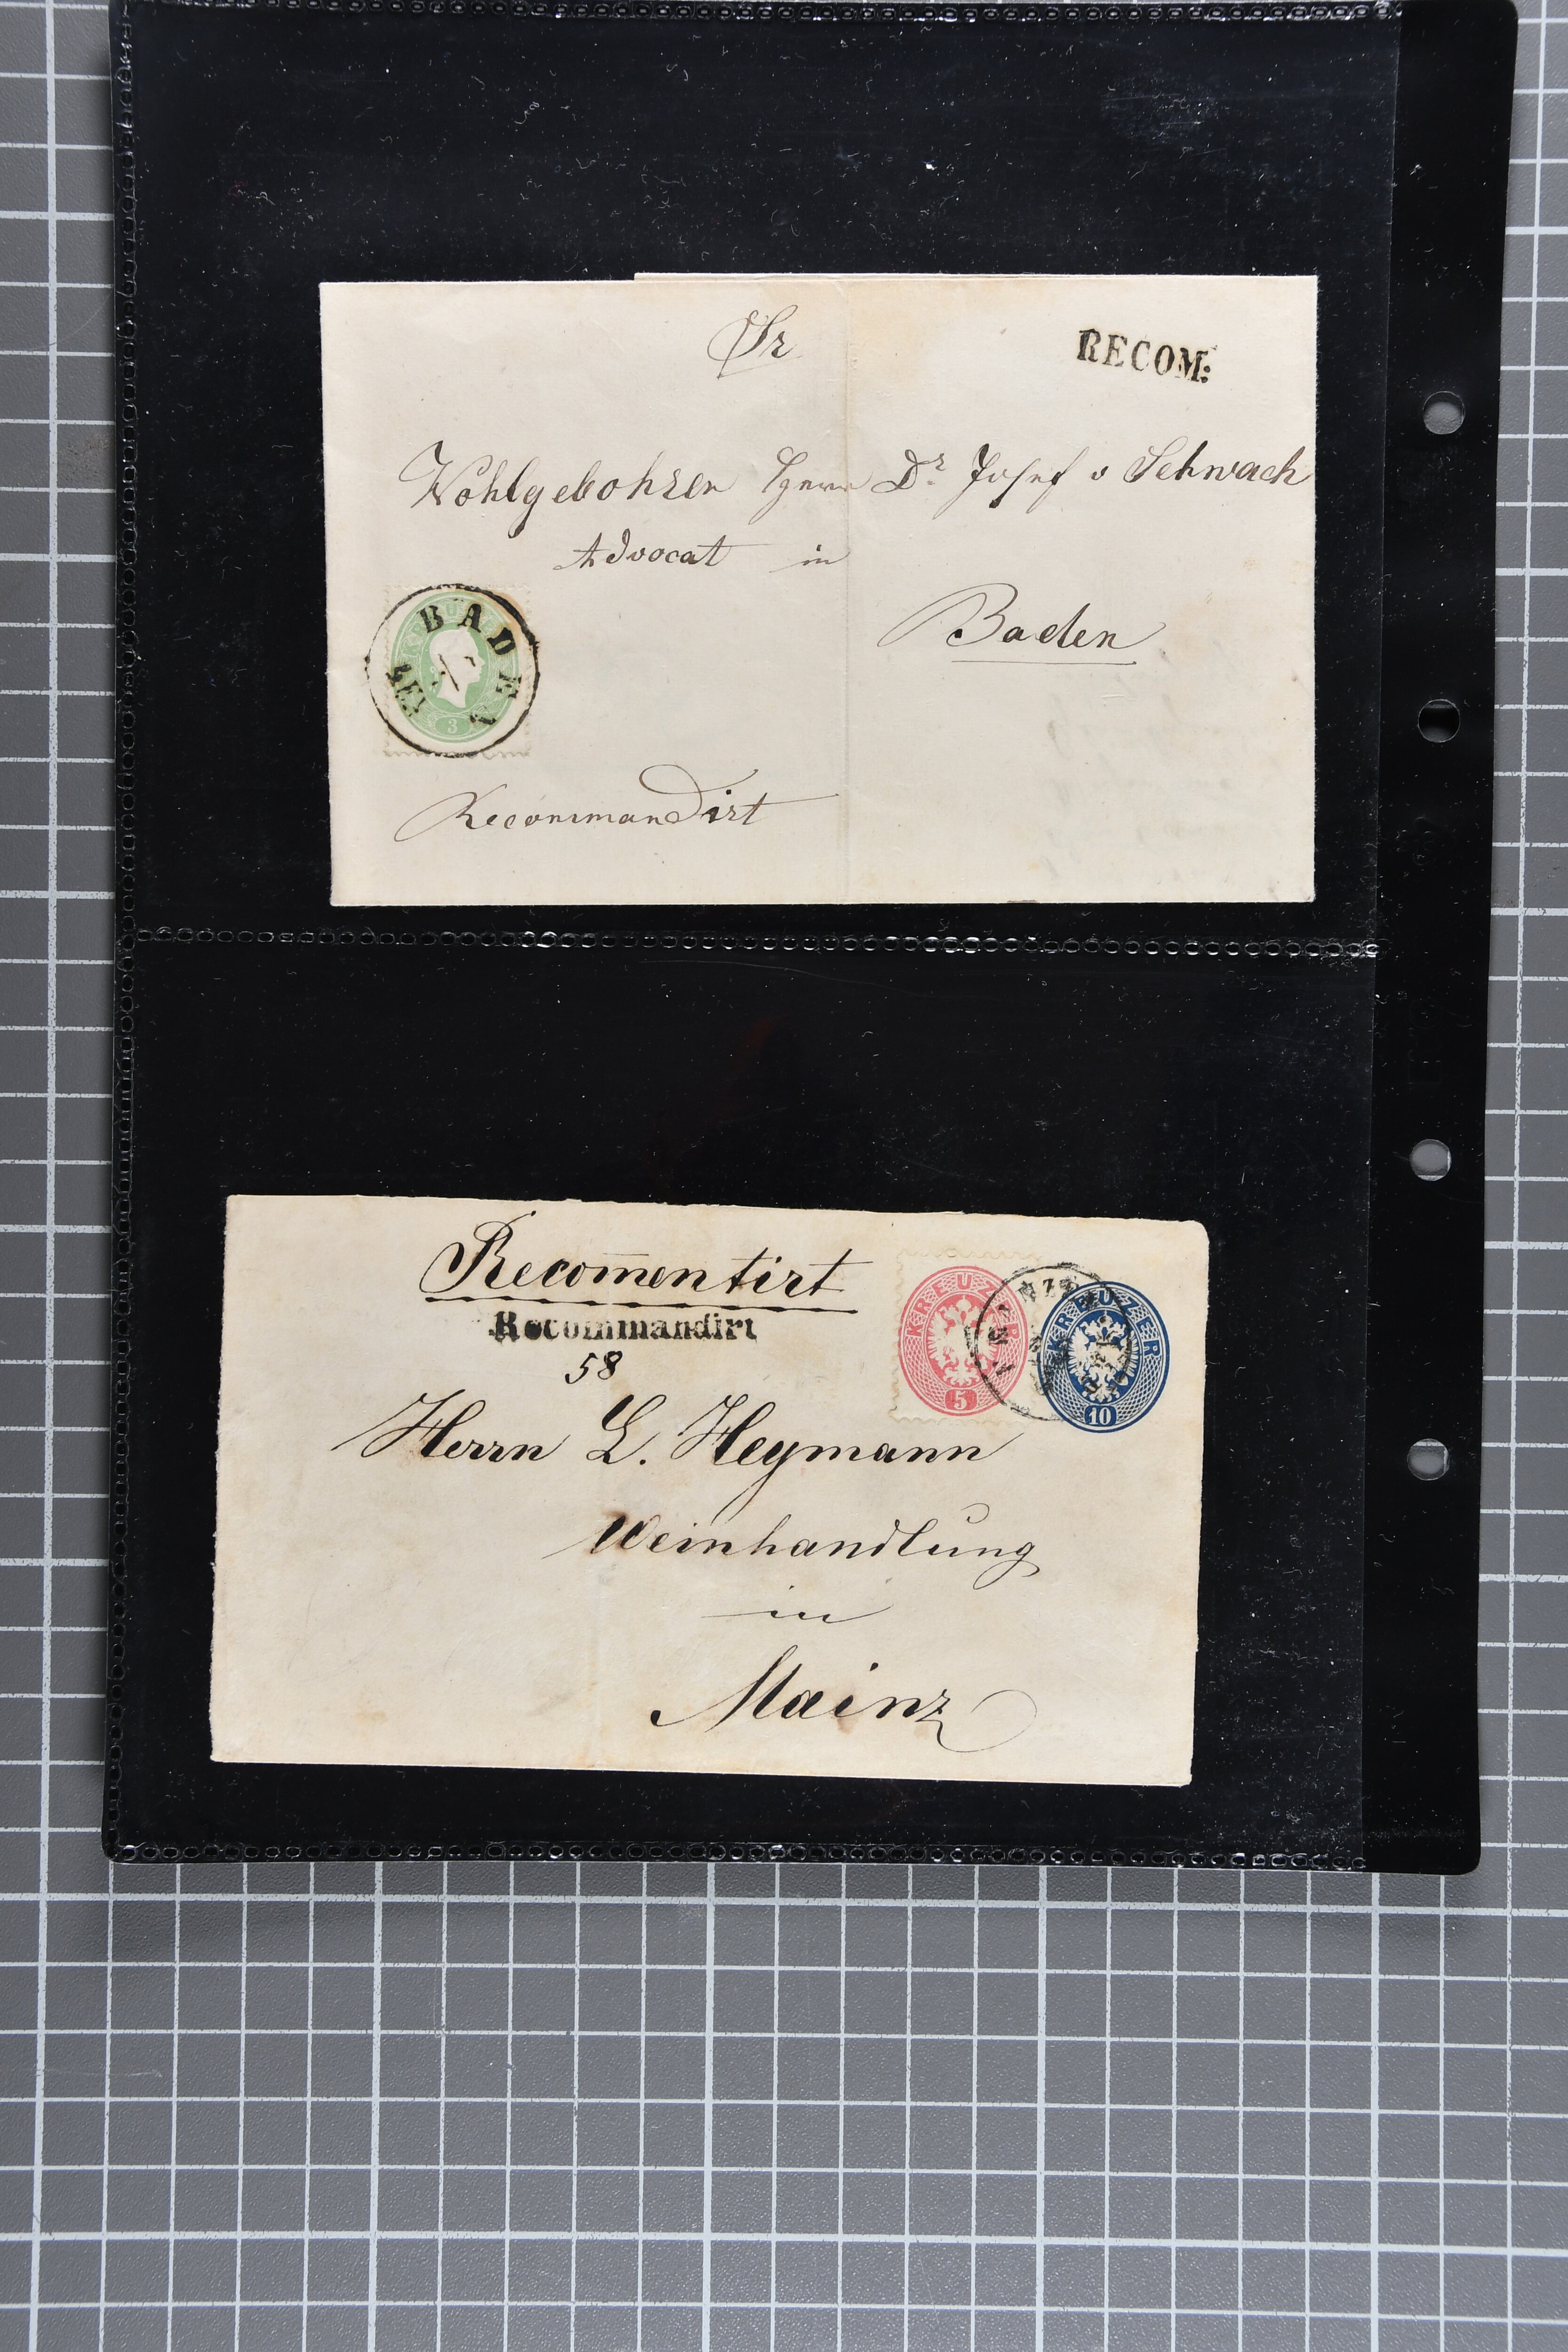 RECOM:
Wohlgebohren Herrn Dr. Josef v Schwach
Advocat in
Baden
BADEN
3
Recommandirt
Recom̄entirt
Recommandirt
58
KREUZER
5
KREUZER
10
Herrn L. Heymann
Weinhandlung
in
Mainz